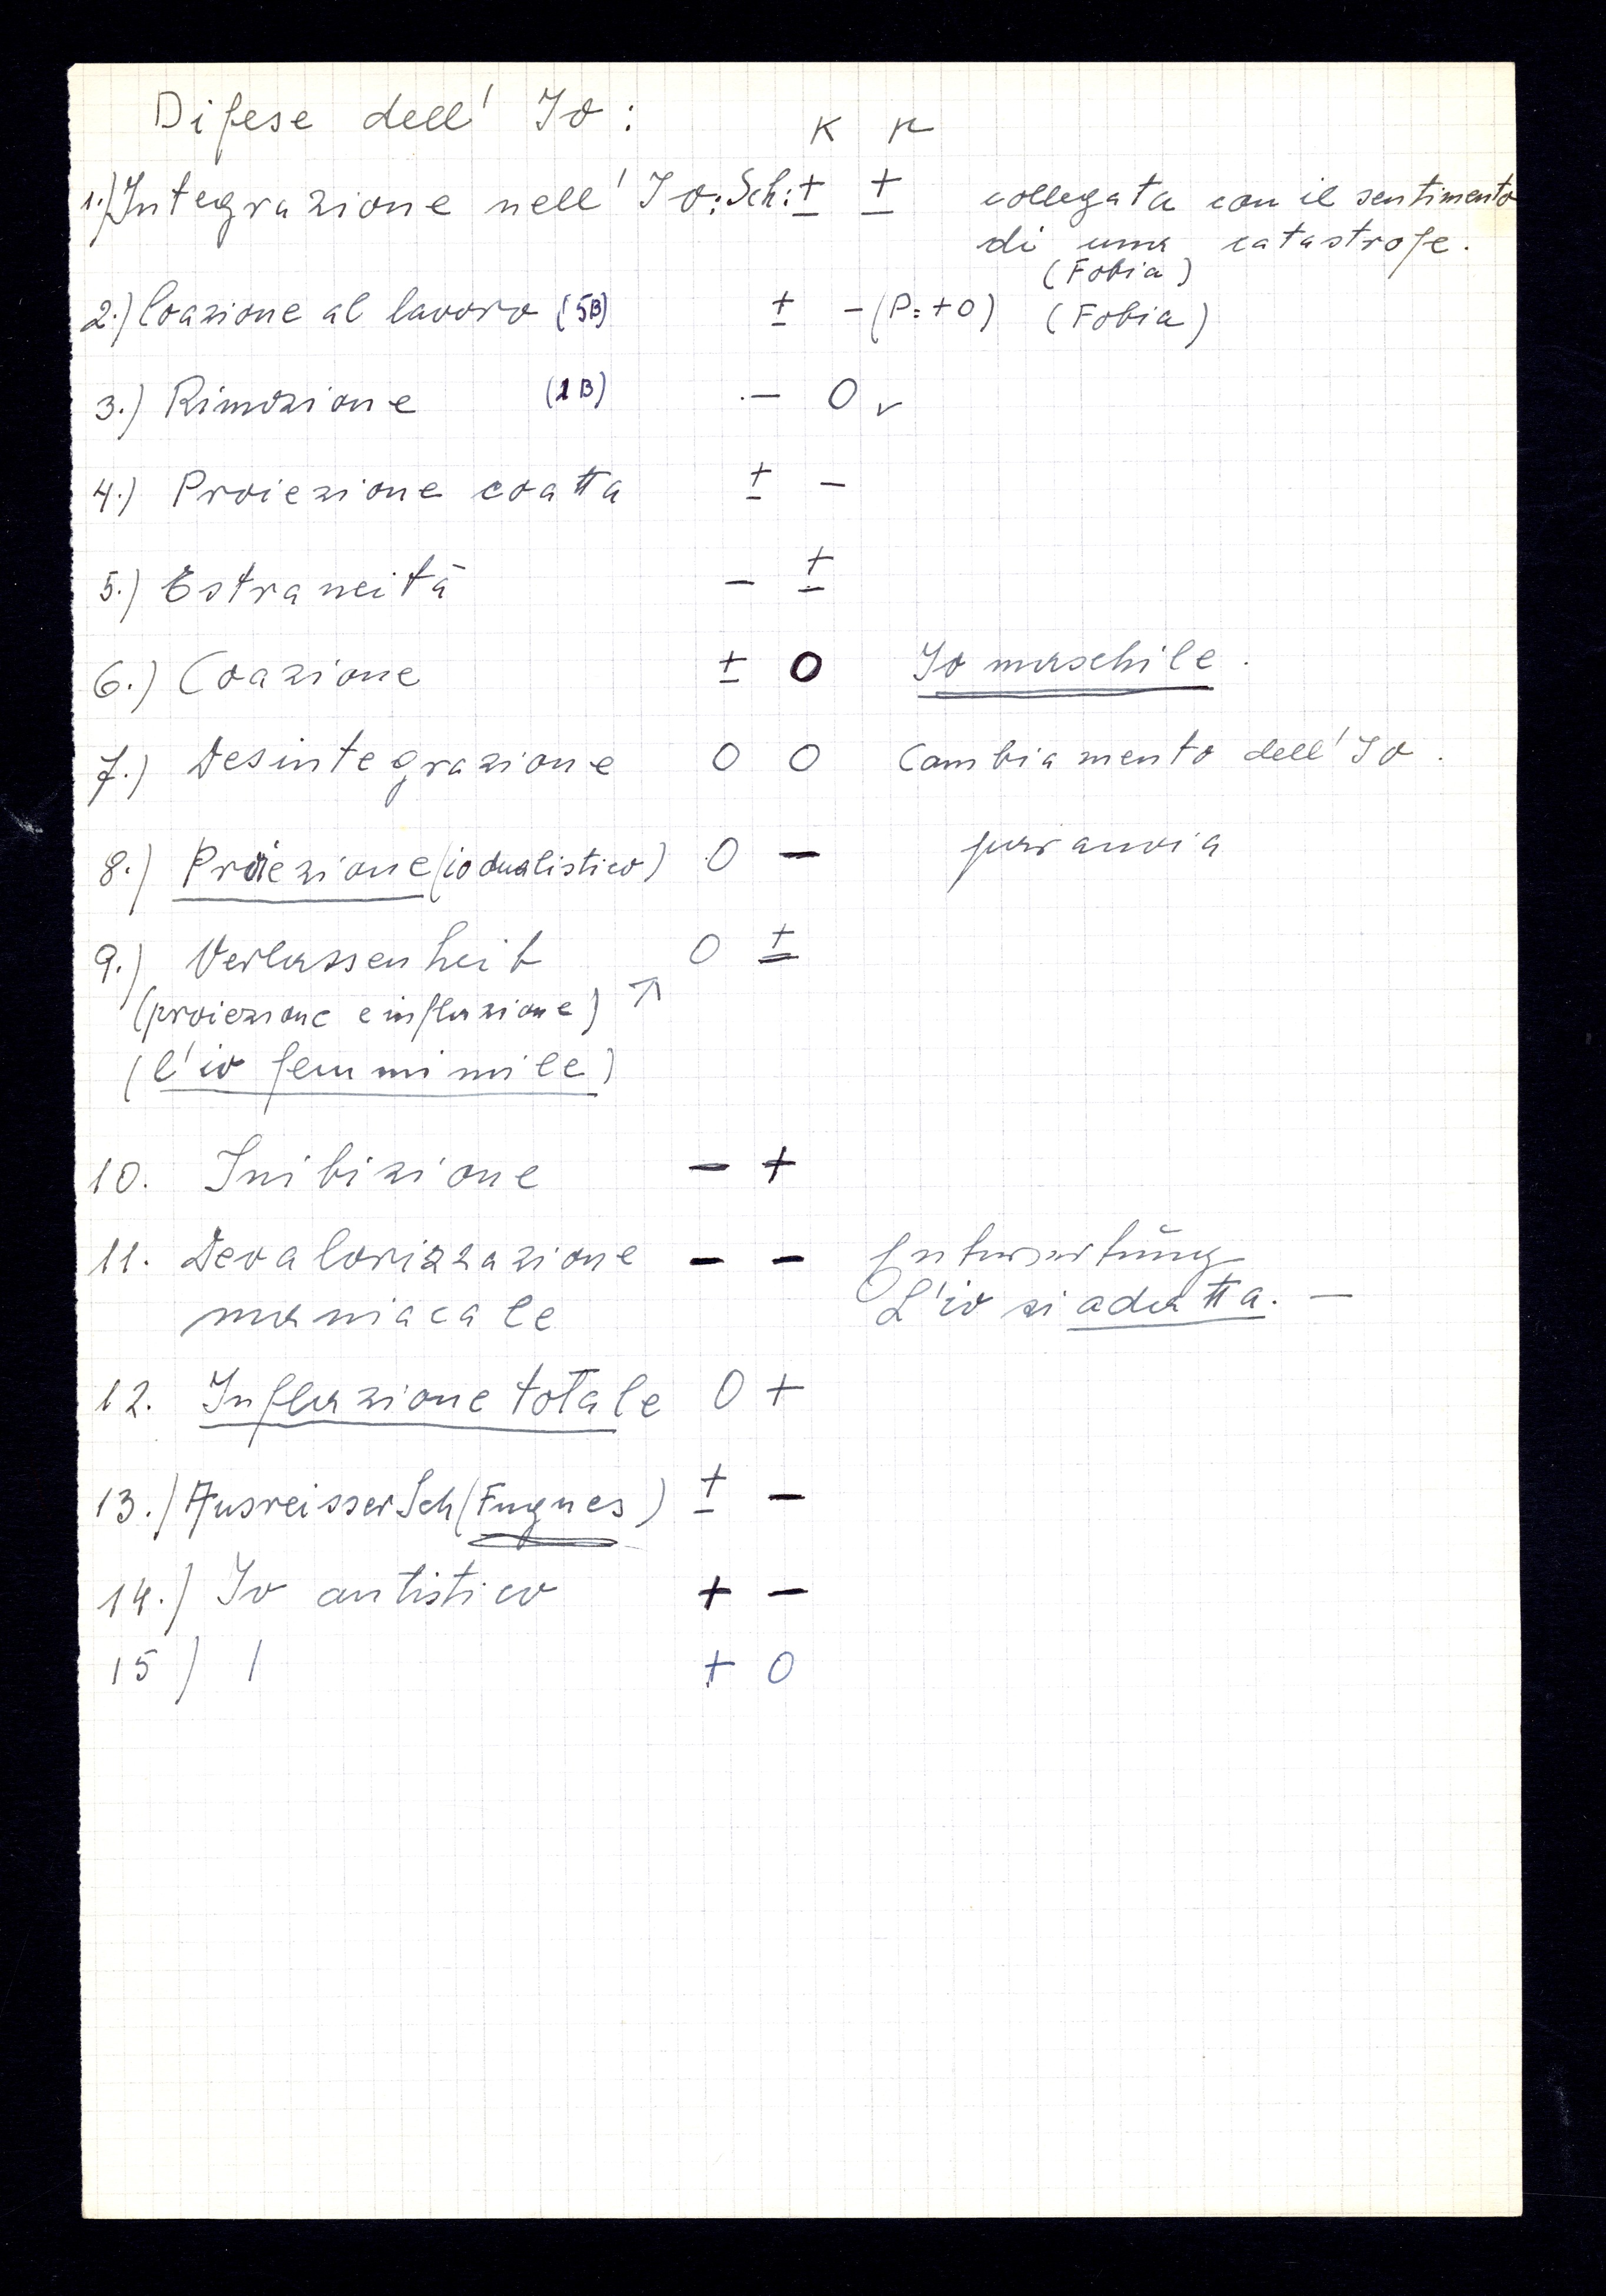 Difese dell' Io:
K p
1.) Integrazione nell' Io: Sch: ± ± collegata con il sentimento
di una catastrofe.
(Fobia)
2.) Coazione al lavoro (5B) ± - (P: +0) (Fobia)
3.) Rimozione (1B) - 0 v
4.) Proiezione coatta ± -
5.) Estraneità - ±
6.) Coazione ± 0 Io maschile.
7.) Desintegrazione 0 0 Cambiamento dell' Io.
8.) Proiezione (io dualistico) 0 - paranoia
9.) Verlassenheit 0 ±
(proiezione e inflazione) ↗
(l'io femminile)
10. Inibizione - +
11. Devalorizzazione - - Entwertung
maniacale L'io si adatta. -
12. Inflazione totale 0 +
13.) Ausreisser Sch (Fugues) ± -
14.) Io autistico + -
15) / + 0